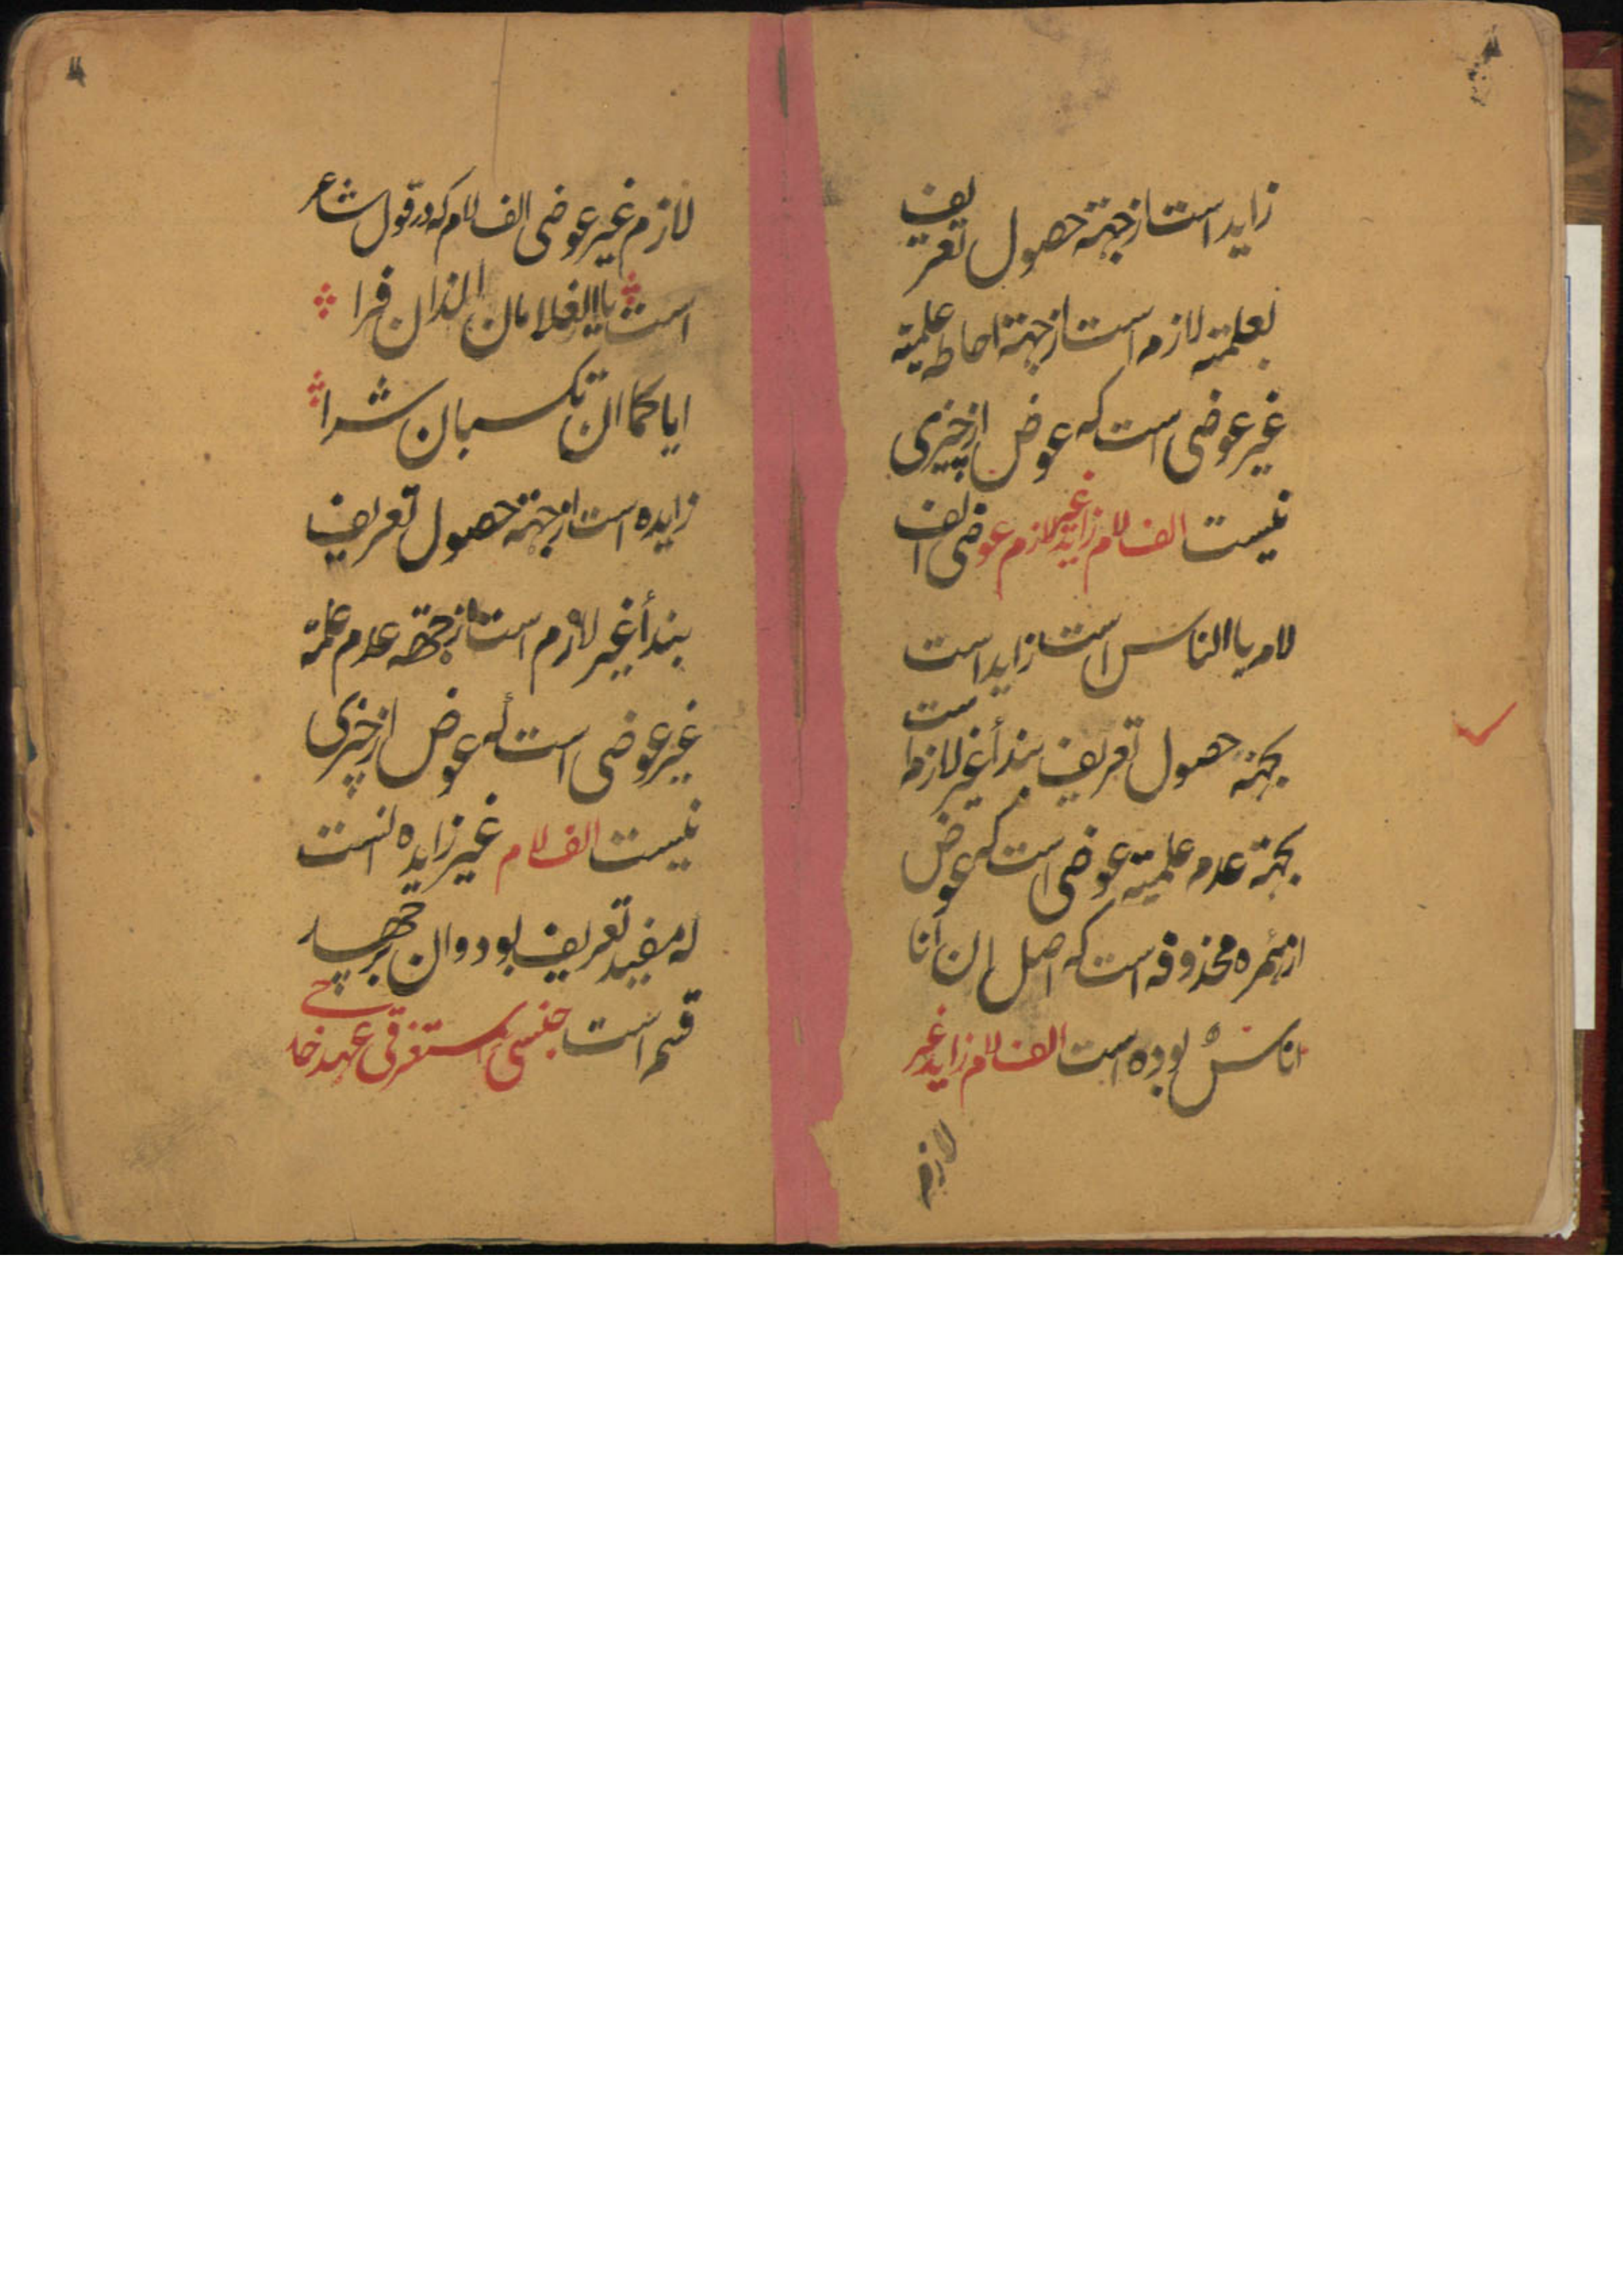 زاید است از جهته حصول تعریف
بعلمیته لازم است از جهته احاطه علمیته
غیر عوضی است که عوض از چیزی
نیست الف لام زاید غیر لازم عوضی الف
لام یا الناس است زاید است
بجهته حصول تعریف بندأ غیر لازم است
بجهته عدم علمیته عوضی است که عوض
از همزه محذوفه است که اصل ان انا
اناس بوده است الف لام زاید غیر
لازم
لازم غیر عوضی الف لام که در قول شاعر
است یا الغلامان الذان فرا
ایاکما ان تکسبان شرا
زایده است از جهته حصول تعریف
بندأ غیر لازم است از جهته عدم علمیته
غیر عوضی است که عوض از چیزی
نیست الف لام غیر زایده انست
که مفید تعریف بود و ان بر چهار
قسم است جنسی استغرقی عهد خارجی